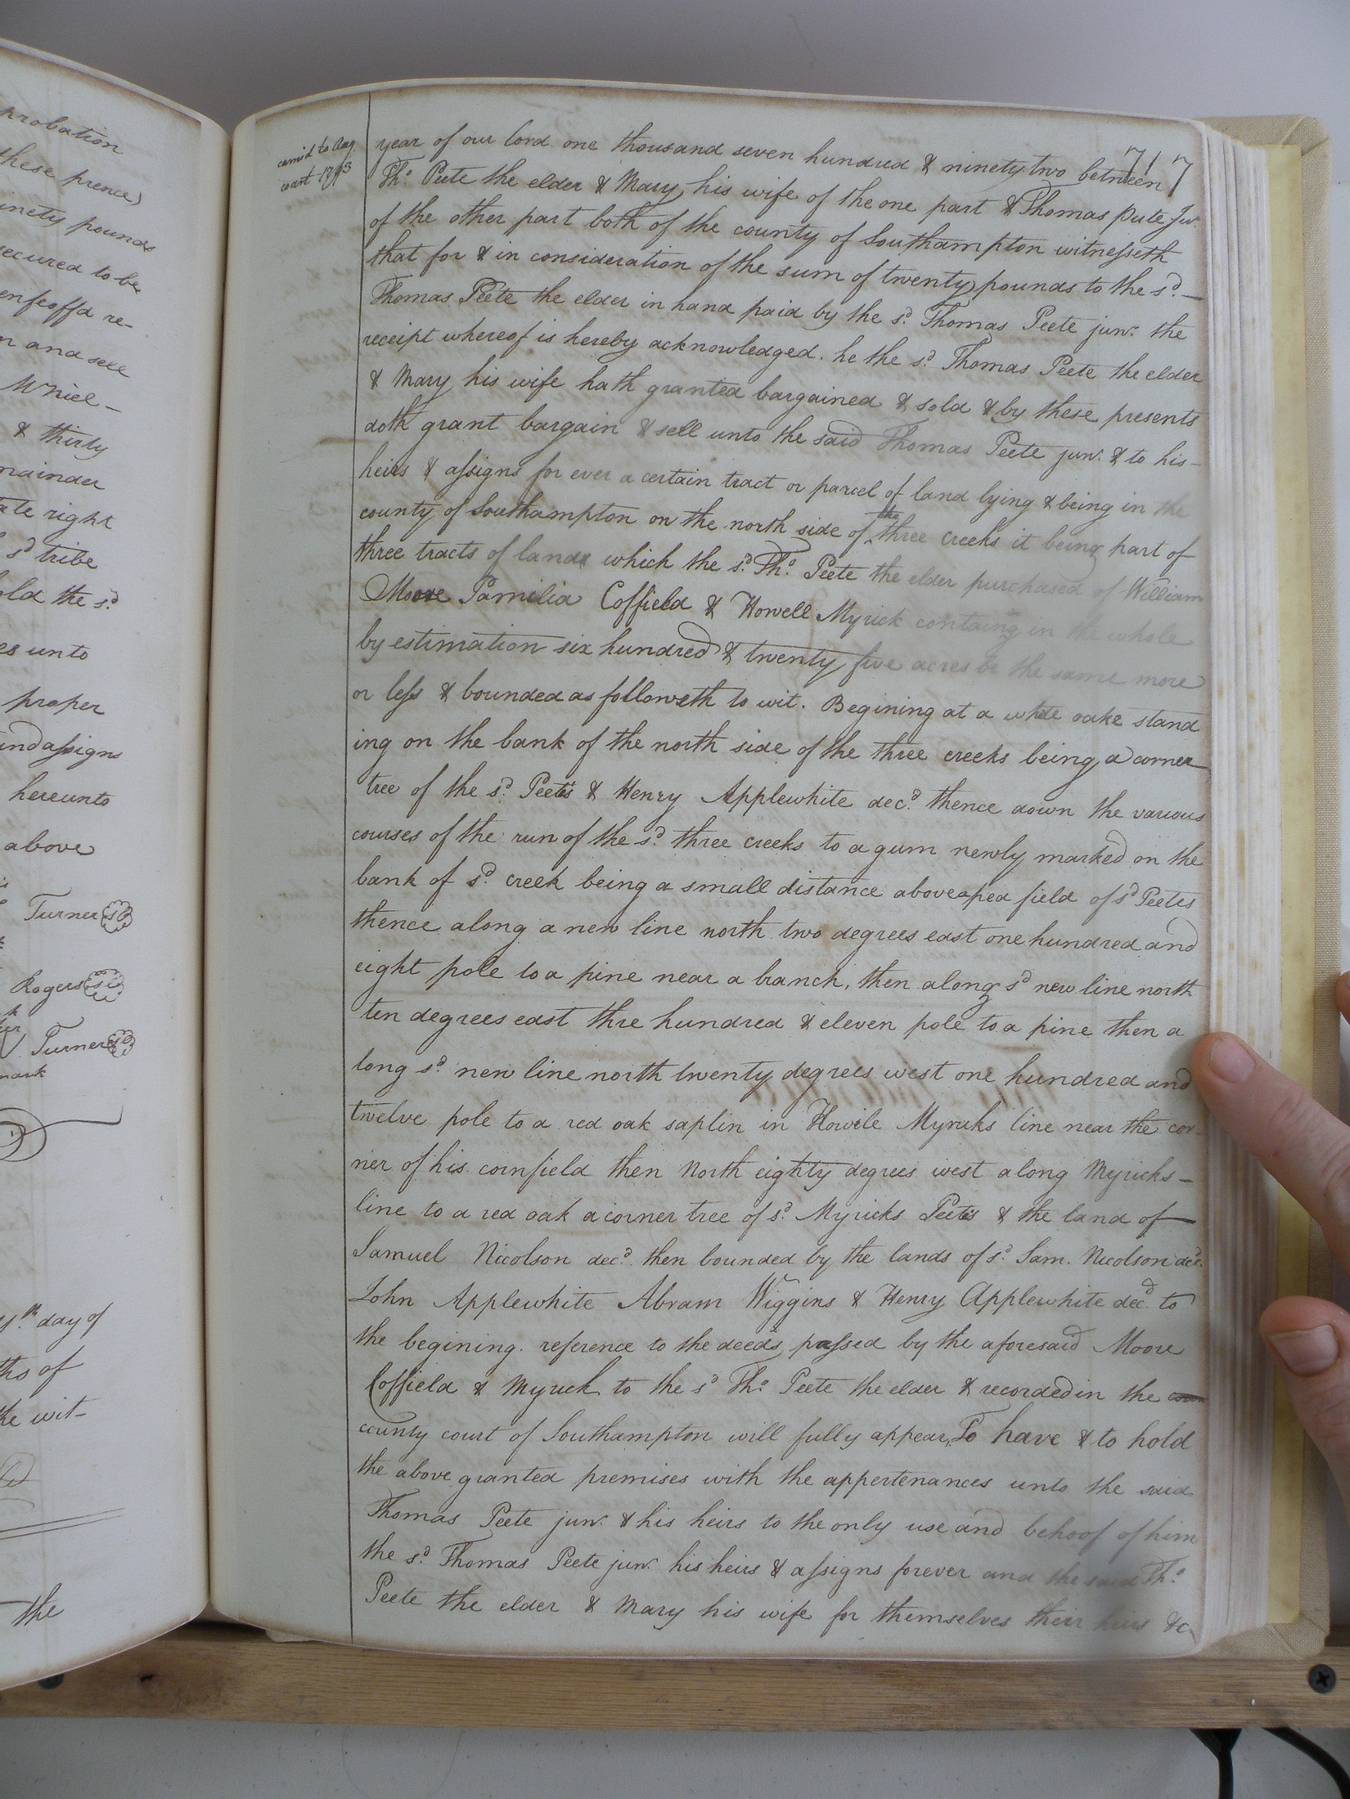 probation
these presence)
ninety pounds
secured to be
enfeoff'd re-
and sell
W'niel -
& thirty
mainder
right
sd tribe
old the sd
es unto
proper
and assigns
hereunto
above
Turner
Rogers
Turner
mark
day of
of
the wit-
the
717
court 1793
year of our lord one thousand seven hundred & ninety two between
Thos. Peete the elder & Mary his wife of the one part & Thomas Peete Jur.
of the other part both of the county of Southampton witnesseth
that for & in consideration of the sum of twenty pounds to the sd. -
Thomas Peete the elder in hand paid by the sd. Thomas Peete junr. the
receipt whereof is hereby acknowledged. he the sd. Thomas Peete the elder
& Mary his wife hath granted bargained & sold & by these presents
doth grant bargain & sell unto the said Thomas Peete junr. & to his -
heirs & assigns for ever a certain tract or parcel of land lying & being in the
county of Southampton on the north side of the three creeks it being part of
three tracts of lands which the sd. Thos. Peete the elder purchased of William
Moore Pamilia Coffield & Howell Myrick containg in the whole
by estimation six hundred & twenty five acres be the same more
or less & bounded as followeth to wit. Begining at a white oake stand
ing on the bank of the north side of the three creeks being a corner
tree of the sd. Peetes & Henry Applewhite decd. thence down the various
courses of the run of the sd. three creeks to a gum newly marked on the
bank of sd. creek being a small distance above field of sd Peetes
thence along a new line north two degrees east one hundred and
eight pole to a pine near a branch, then along sd new line north
ten degrees east thre hundred & eleven pole to a pine then a
long sd. new line north twenty degrees west one hundred and
twelve pole to a red oak saplin in Howele Myricks line near the cor-
ner of his cornfield then North eighty degrees west along Myricks -
line to a red oak a corner tree of sd. Myricks Peetes & the land of
Samuel Nicolson decd. then bounded by the lands of sd. Sam. Nicolson decd.
John Applewhite Abram Wiggins & Henry Applewhite decd. to
the begining. reference to the deeds passed by the aforesaid Moore
Coffield & Myrick to the sd Thos. Peete the elder & recorded in the
county court of Southampton will fully appear, To have & to hold
the above granted premises with the appertenances unto the said
Thomas Peete junr. & his heirs to the only use and behoof of him
the sd. Thomas Peete junr. his heirs & assigns forever and the said Thos.
Peete the elder & Mary his wife for themselves their heirs &c